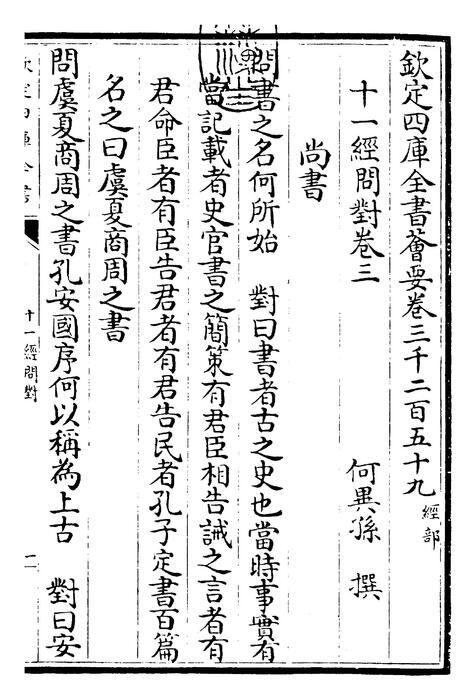 欽定四庫全書薈要卷三千二百五十九 經部
十一經問對卷三
何異孫 撰
尚書
問書之名何所始 對曰書者古之史也當時事實有
當記載者史官書之簡策有君臣相告誡之言者有
君命臣者有臣告君者有君告民者孔子定書百篇
名之曰虞夏商周之書
問虞夏商周之書孔安國序何以稱為上古 對曰安
欽定四庫全書
十一經問對